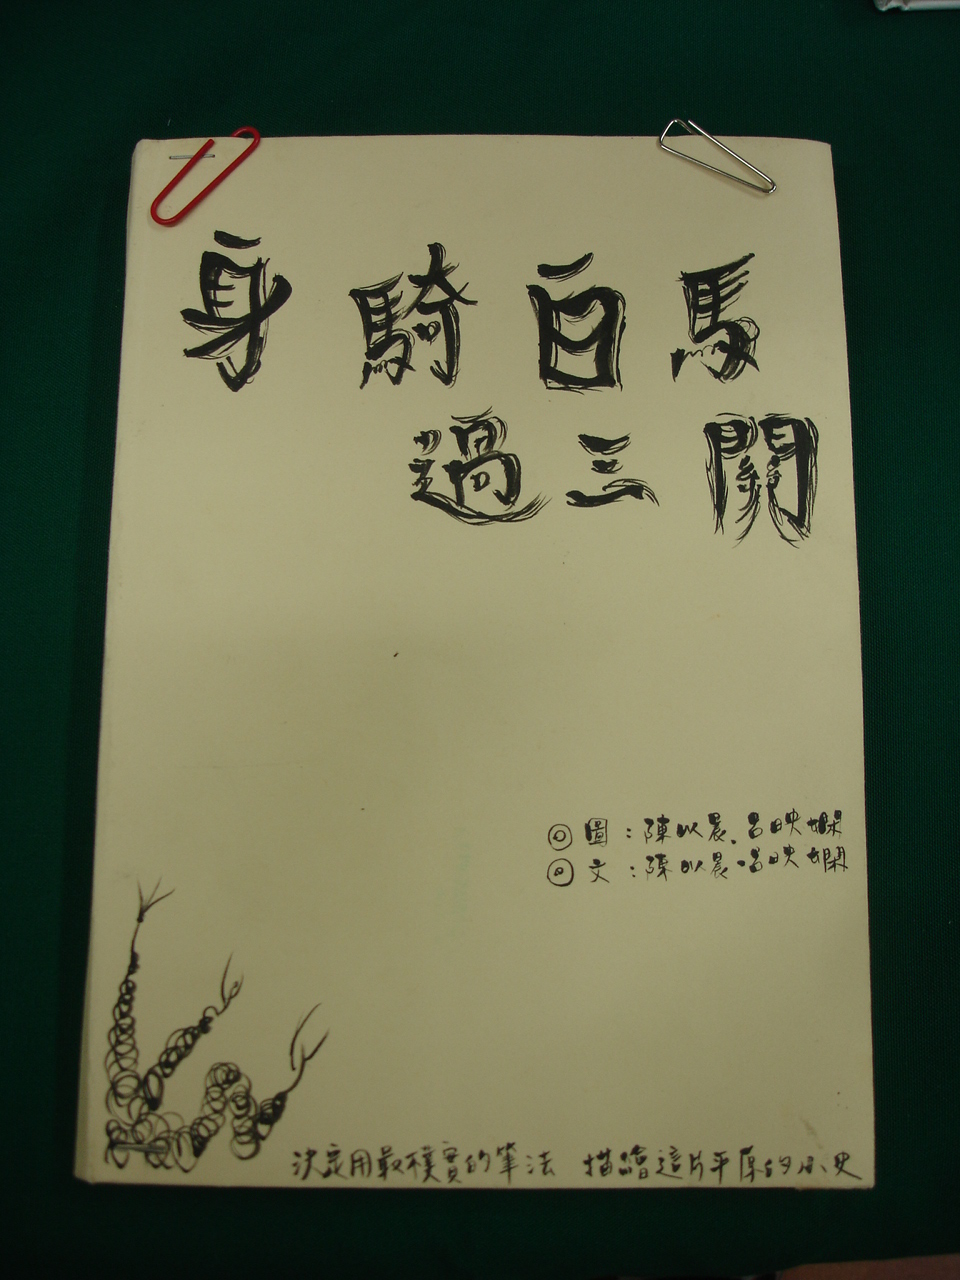 身騎白馬
過三關
◎圖：陳以晨、呂映嫻
◎文：陳以晨、呂映嫻
決定用最樸實的筆法 描繪這片平原的小史